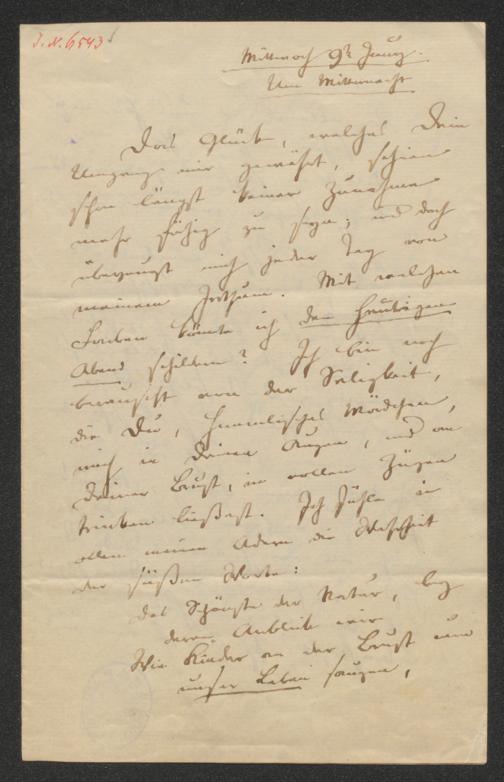 J. N. 6543
Mittwoch 9t Juny.
Um Mitternacht
Das Glück, welches Dein
Umgang mir gewährt, schien
schon längst keiner Zunahme
mehr fähig zu seyn; und doch
überzeugt mich jeder Tag von
meinem Irrthum. Mit welchen
Farben könnte ich den heutigen
Abend schildern? Ich bin noch
berauscht von der Seligkeit,
die Du, himmlisches Mädchen,
mich in Deinen Augen, und an
Deiner Brust, in vollen Zügen
trinken ließest. Ich fühle in
allen meinen Adern die Wahrheit
der süßen Worte:
das Schönste der Natur, bey
deren Anblick wir
Wie Kinder an der Brust um
unser Leben saugen,